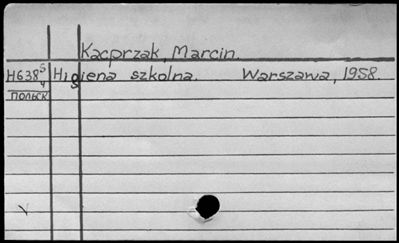 Kacprzak, Marcin.
H638 5/4 Higiena szkolna. Warszawa, 1958.
польск